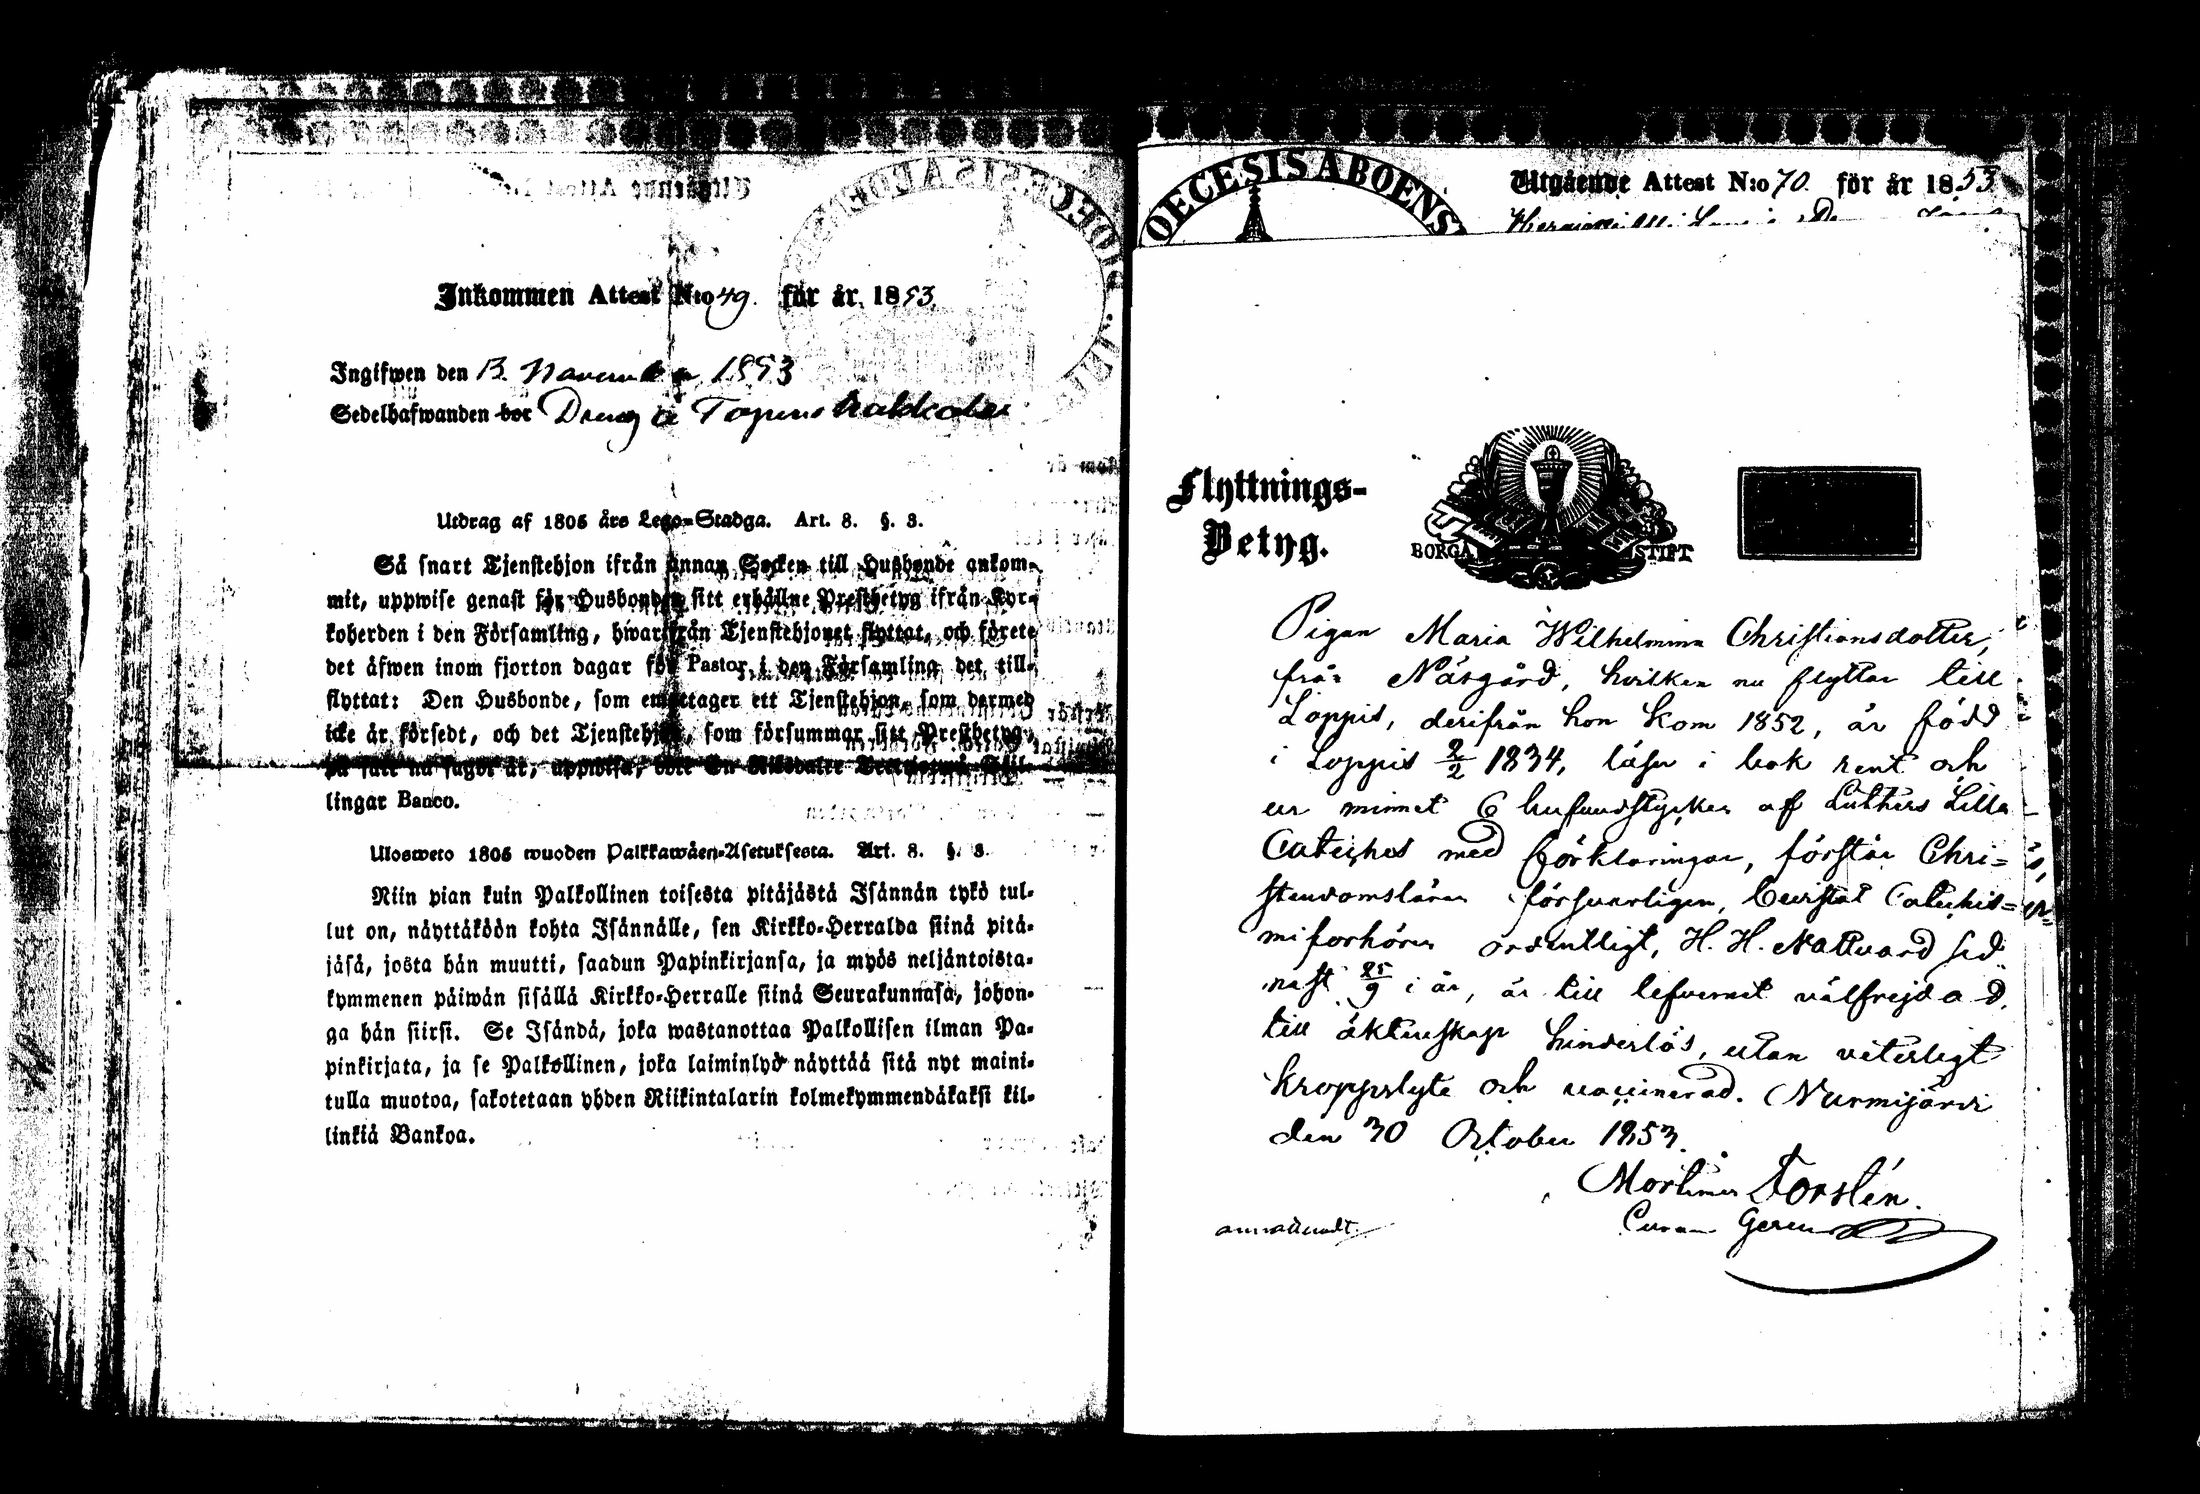 Inkommen Attest N:o 49. för år 1853.
Ingifwen den 13 November 1853
Sedelhafwanden bor Dreng å Topens
Utdrag af 1805 års Lego-Stadga. Art. 8. §. 3.
Så snart Tjenstehjon ifrån annan Socken till Husbonde ankom-
mit, uppwise genast för Husbonden sitt erhållne Prestbetyg ifrån Kyr-
koherden i den Församling, hwarifrån Tjenstehjonet flyttat, och förete
det äfwen inom fjorton dagar för Pastor i den Församling det till-
flyttat: Den Husbonde, som emottager ett Tjenstehjon, som dermed
icke är försedt, och det Tjenstehjon, som försummar sitt Prestbetyg,
på sätt nu sagdt är, uppwisa, böte En Riksdaler
lingar Banco.
Ulosweto 1805 wuoden Palkkawäen-Asetuksesta. Art. 8. §. 3.
Niin pian kuin Palkollinen toisesta pitäjästä Isännän tykö tul-
lut on, näyttäköön kohta Isännälle, sen Kirkko-Herralda siinä pitä-
jäsä, josta hän muutti, saadun Papinkirjansa, ja myös neljäntoista-
kymmenen päiwän sisällä Kirkko-Herralle siinä Seurakunnasa, johon-
ga hän siirsi. Se Isändä, joka wastanottaa Palkollisen ilman Pa-
pinkirjata, ja se Palkollinen, joka laiminlyö näyttää sitä nyt maini-
tulla muotoa, sakotetaan yhden Riikintalarin kolmekymmendäkaksi kil-
linkiä Bankoa.
OECESIS ABOENS
Utgående Attest N:o 70. för år 1853
Flyttnings-
Betyg.
BORGÅ STIFT
Pigan Maria Wilhelmina Christiansdotter,
från Näsgård, hvilken nu flyttar till
Loppis, derifrån hon kom 1852, är född
i Loppis 2/2 1834, läser i bok rent och
ur minnet 6 hufvudstycken af Luthers Lilla
Cateches med förklaringar, förstår Chri-
stendomsläran försvarligen, bevistat Catechis-
miförhören ordentligt, H. H. Nattvard sed
nast 25/9 i år, är till lefvernet välfrejdad,
till äktenskap hinderlös, utan veterligt
kroppslyte och vaccinerad. Nurmijärvi
den 30 October 1853.
Mortimer Forstén.
Curam Gerens